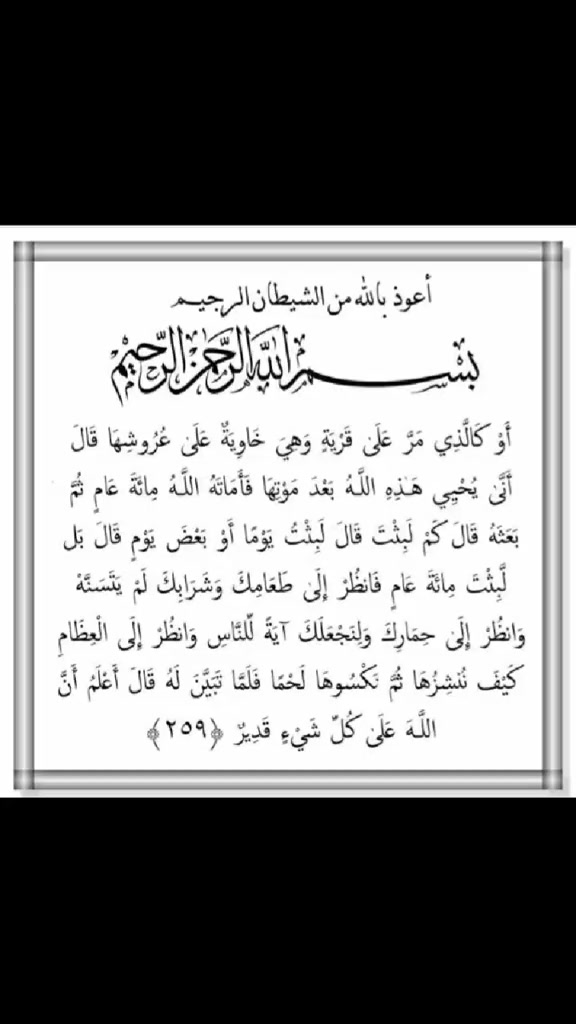 أعوذ بالله من الشيطان الرجيم
بسم الله الرحمن الرحيم
أَوْ كَالَّذِي مَرَّ عَلَىٰ قَرْيَةٍ وَهِيَ خَاوِيَةٌ عَلَىٰ عُرُوشِهَا قَالَ
أَنَّىٰ يُحْيِي هَـٰذِهِ اللَّـهُ بَعْدَ مَوْتِهَا فَأَمَاتَهُ اللَّـهُ مِائَةَ عَامٍ ثُمَّ
بَعَثَهُ قَالَ كَمْ لَبِثْتَ قَالَ لَبِثْتُ يَوْمًا أَوْ بَعْضَ يَوْمٍ قَالَ بَل
لَّبِثْتَ مِائَةَ عَامٍ فَانظُرْ إِلَىٰ طَعَامِكَ وَشَرَابِكَ لَمْ يَتَسَنَّهْ
وَانظُرْ إِلَىٰ حِمَارِكَ وَلِنَجْعَلَكَ آيَةً لِّلنَّاسِ وَانظُرْ إِلَى الْعِظَامِ
كَيْفَ نُنشِزُهَا ثُمَّ نَكْسُوهَا لَحْمًا فَلَمَّا تَبَيَّنَ لَهُ قَالَ أَعْلَمُ أَنَّ
اللَّـهَ عَلَىٰ كُلِّ شَيْءٍ قَدِيرٌ ﴿٢٥٩﴾